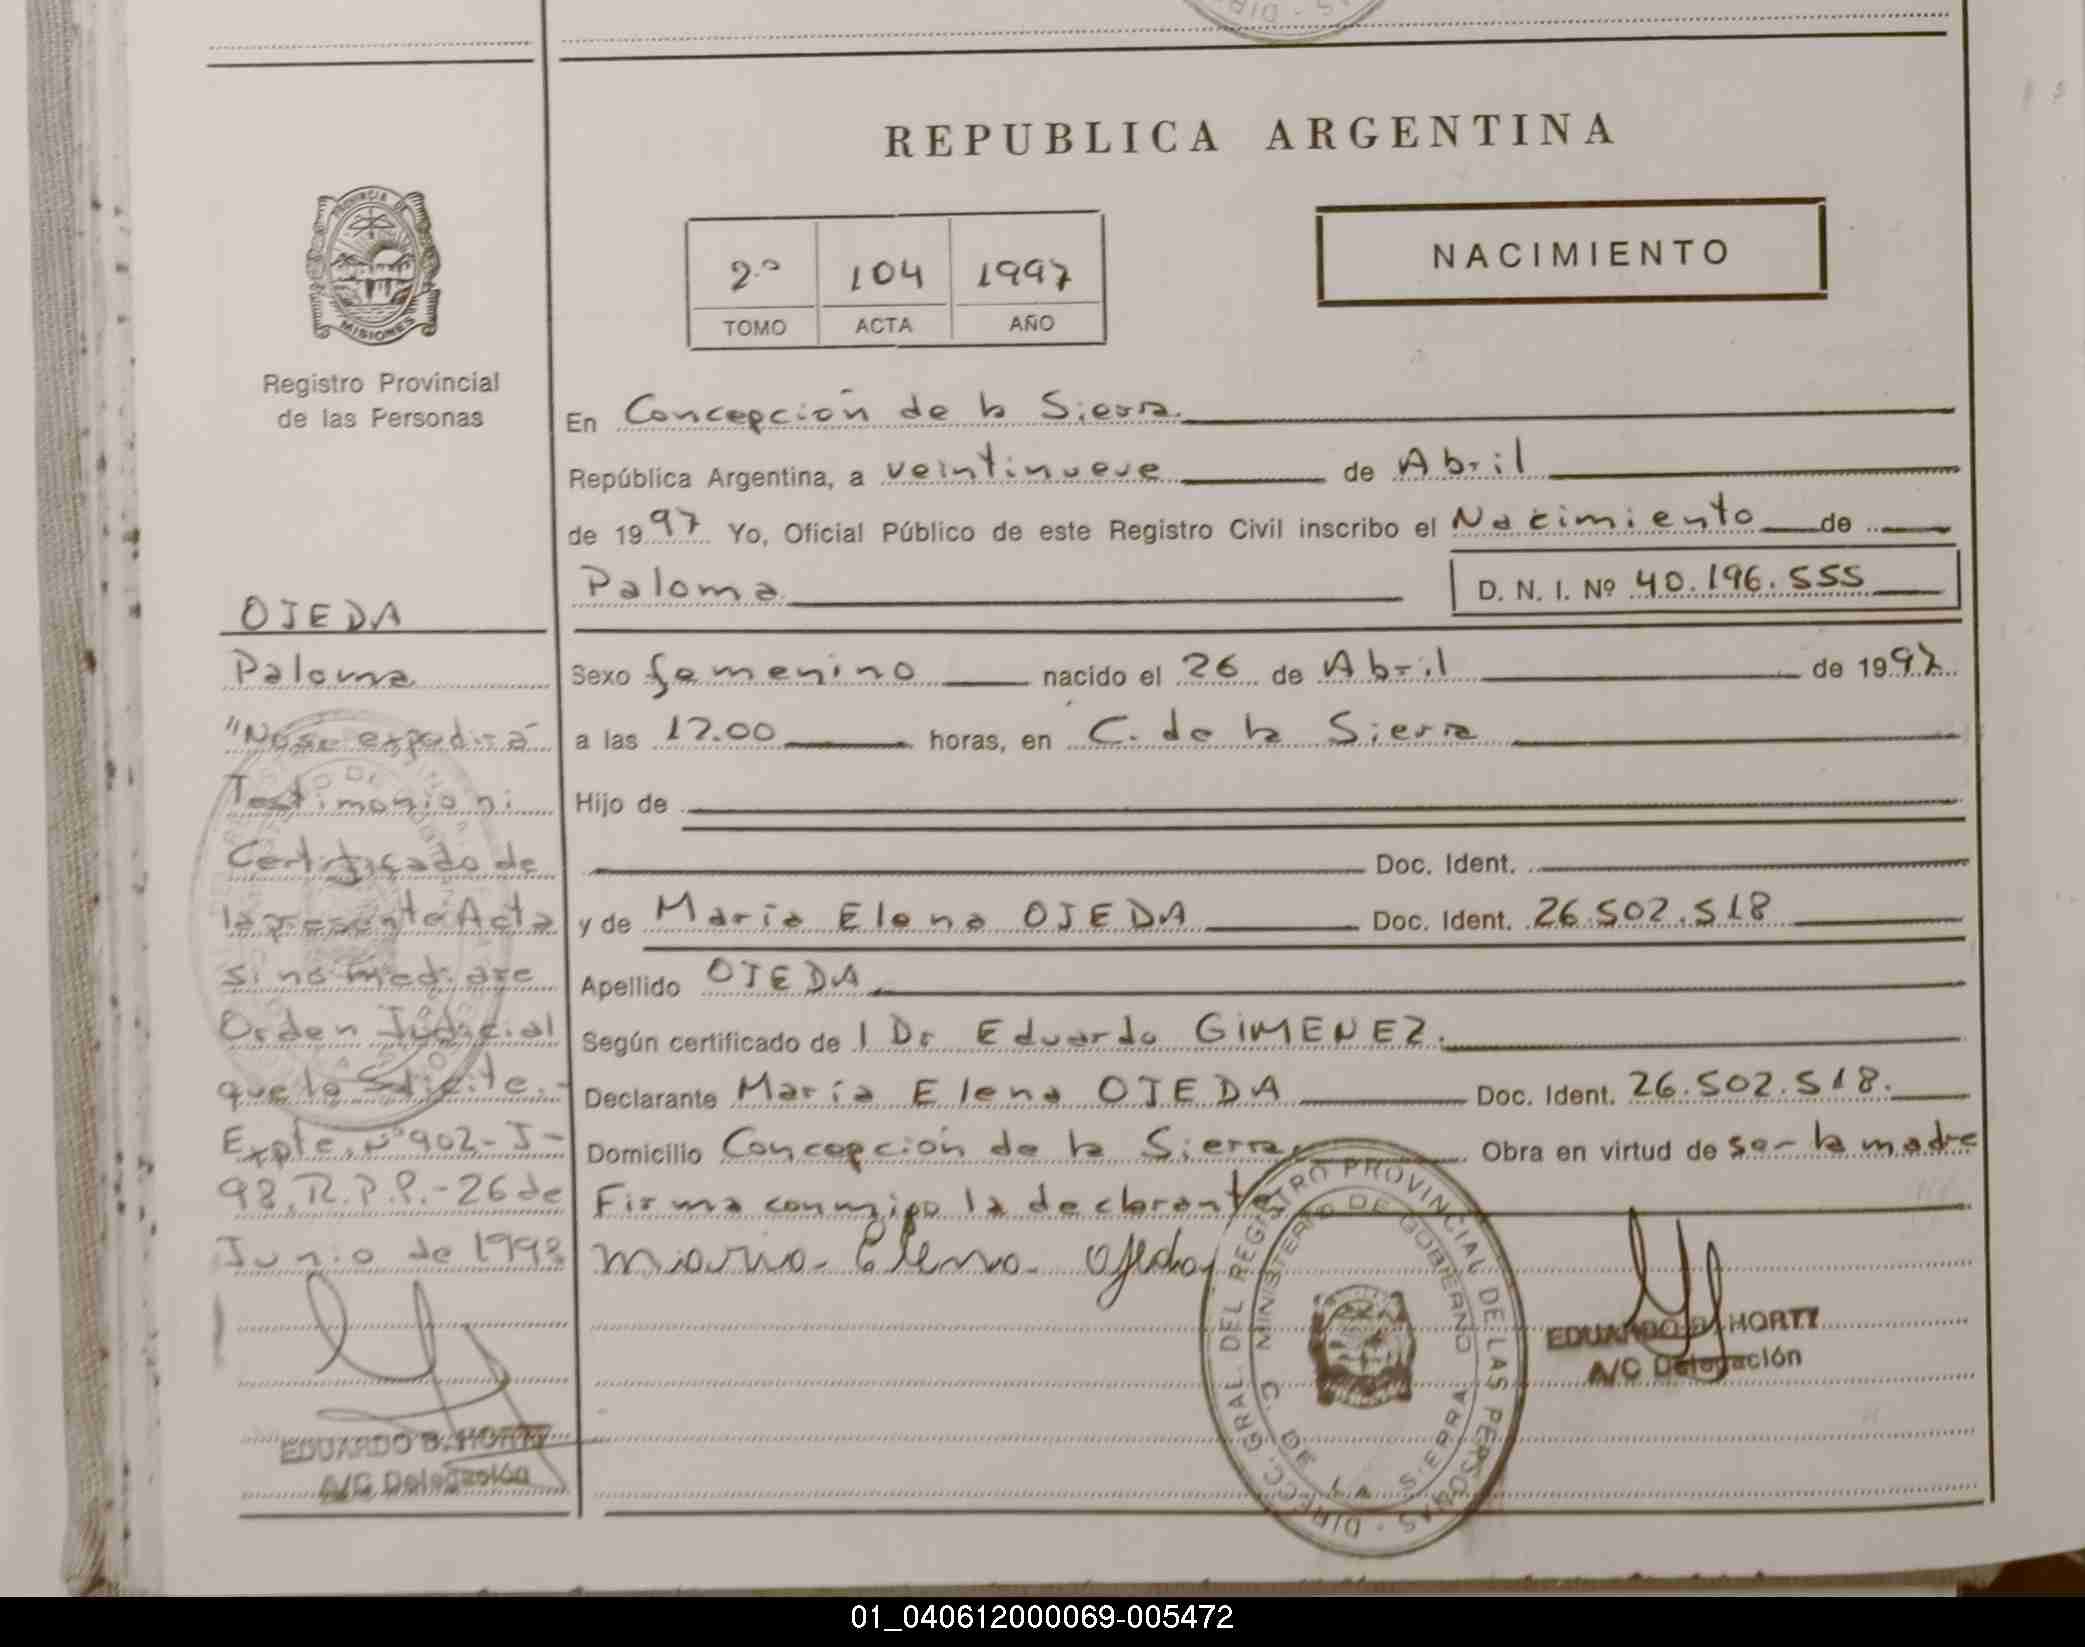 REPUBLICA ARGENTINA
PROVINCIA DE
MISIONES
Registro Provincial
de las Personas
2.º 104 1997
TOMO ACTA AÑO
NACIMIENTO
En Concepción de la Sierra.
República Argentina, a veintinueve de Abril
de 1997 Yo, Oficial Público de este Registro Civil inscribo el Nacimiento de
Paloma D. N. I. Nº 40.196.555
Sexo femenino nacido el 26 de Abril de 1997
a las 12.00 horas, en C. de la Sierra
Hijo de
Doc. Ident.
y de María Elena OJEDA Doc. Ident. 26.502.518
Apellido OJEDA
Según certificado de l Dr Eduardo GIMENEZ.
Declarante María Elena OJEDA Doc. Ident. 26.502.518.
Domicilio Concepción de la Sierra Obra en virtud de ser la madre
Firma conmigo la declarante
Maria Elena Ojeda
DIRECC. GRAL. DEL REGISTRO PROVINCIAL DE LAS PERSONAS
MINISTERIO DE GOBIERNO
C. DE LA SIERRA
EDUARDO B. HORTT
A/C Delegación
OJEDA
Paloma
"No se expedirá
Testimonio ni
Certificado de
la presente Acta
si no mediare
Orden Judicial
que lo Solicite.-
Expte. Nº 902-J-
98. R.P.P.-26 de
Junio de 1998
EDUARDO B. HORTT
A/C Delegación
01_040612000069-005472